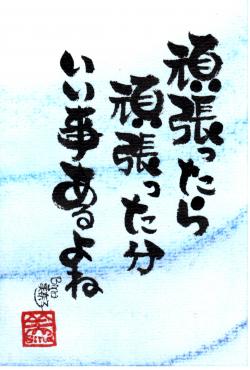 頑張ったら
頑張った分
いい事あるよね